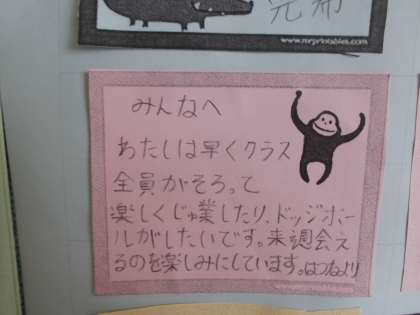 完 布
www.mrprintables.com
みんなへ
わたしは早くクラス
全員がそろって
楽しくじゅ業したり、ドッジボー
ルがしたいです。来週会え
るのを楽しみにしています。はつねより
www.mrprintables.com